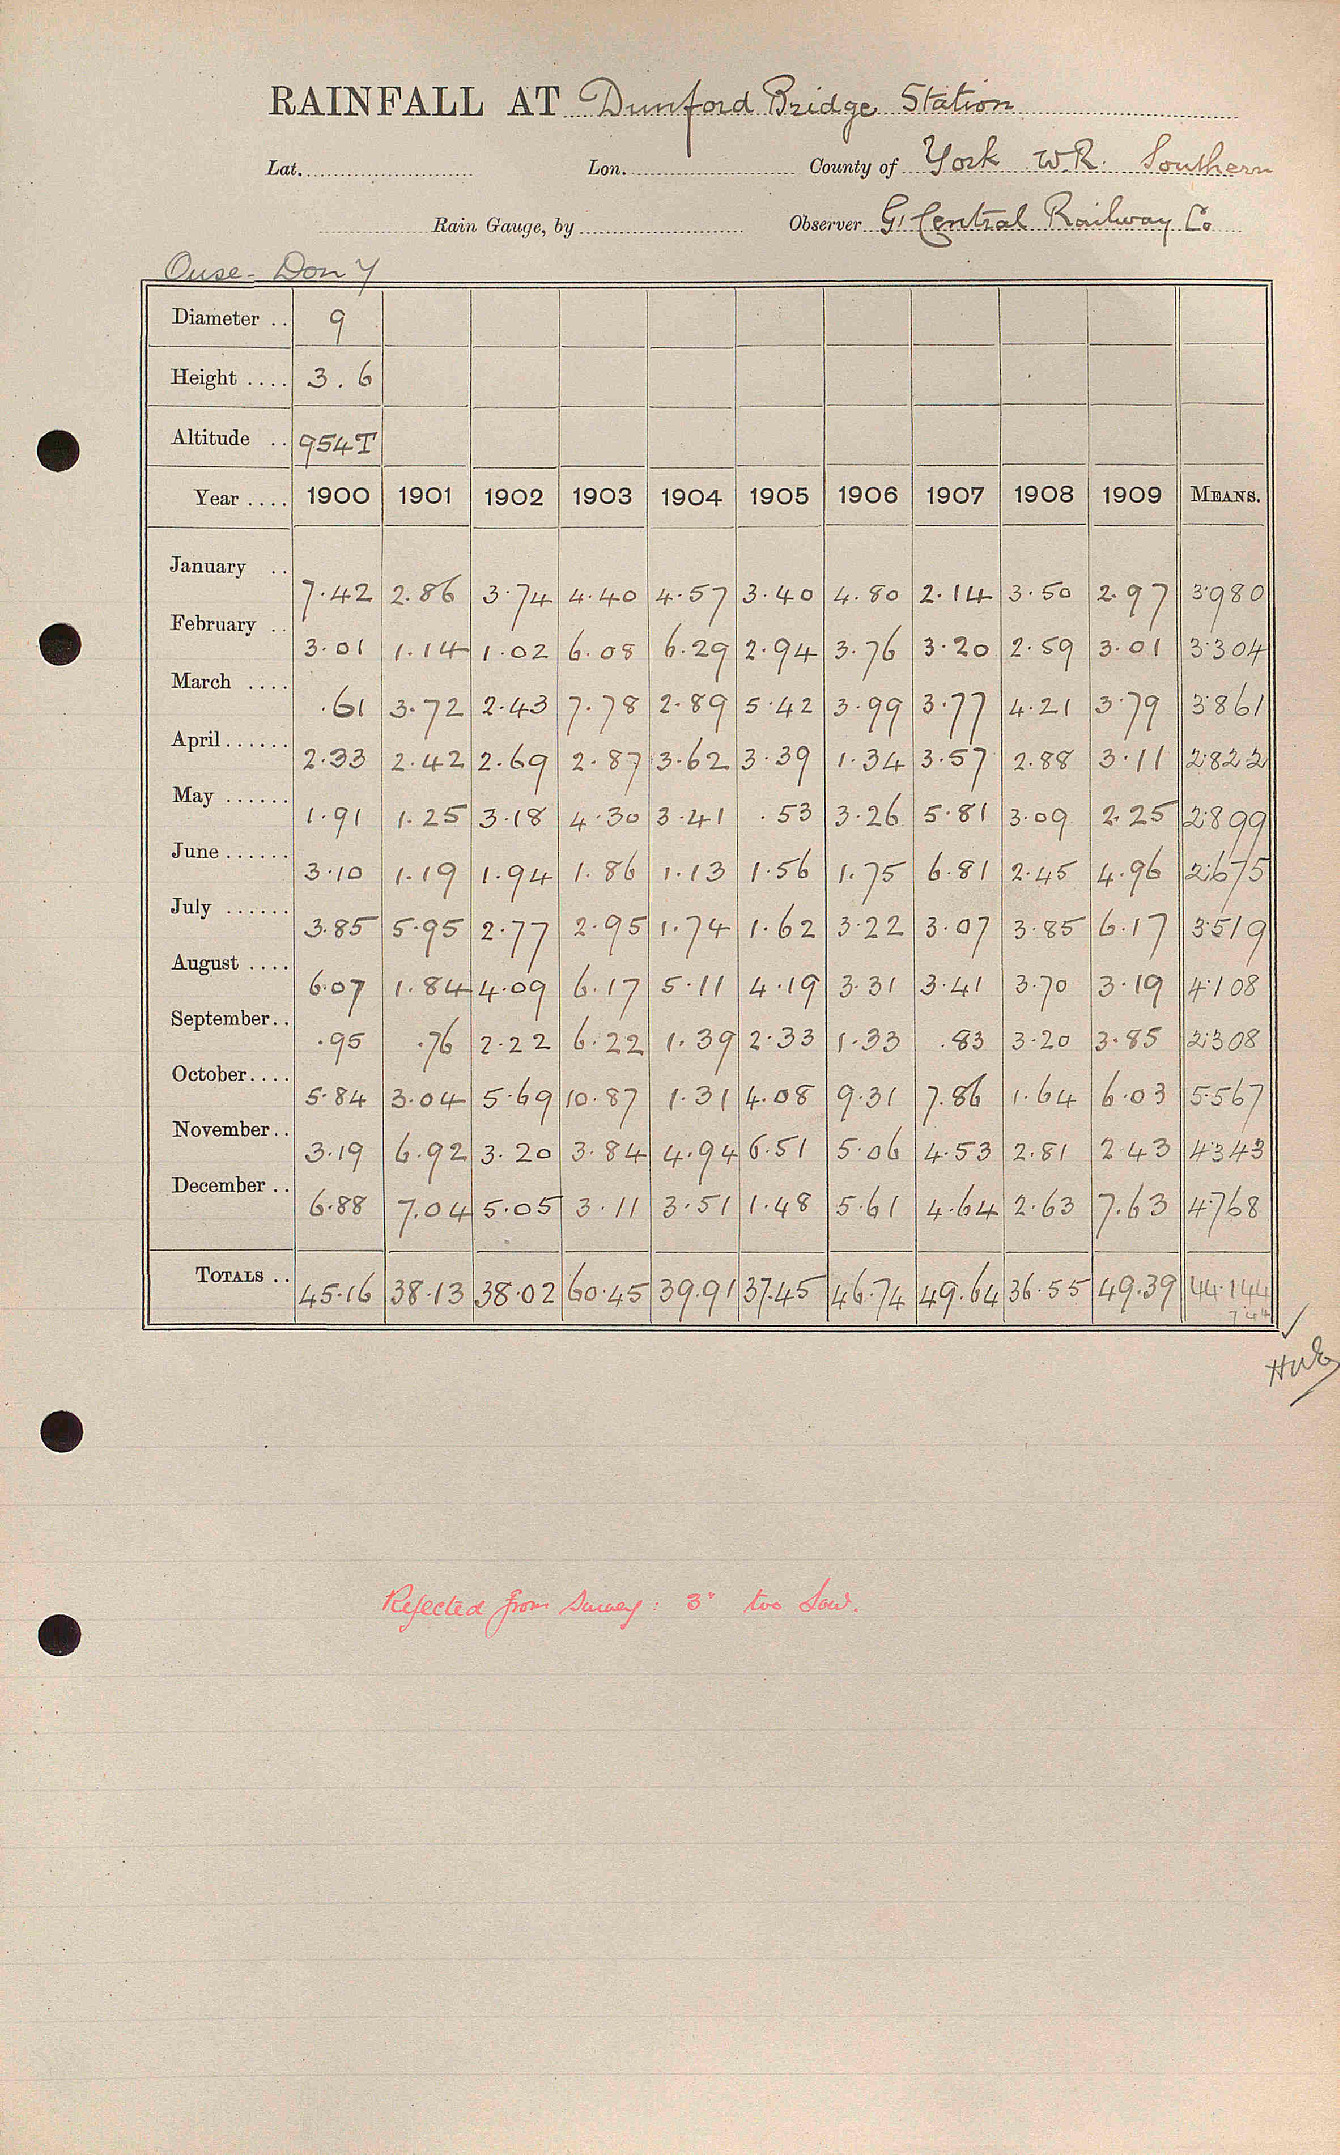 RAINFALL AT Dunford Bridge Station
Lat. Lon. County of York W.R. Southern
Rain Gauge, by Observer G. Central Railway Co
Ouse - Don Y
Diameter .. 9
Height .... 3.6
Altitude .. 954T
Year .... 1900 1901 1902 1903 1904 1905 1906 1907 1908 1909 MEANS.
January .. 7.42 2.86 3.74 4.40 4.57 3.40 4.80 2.14 3.50 2.97 3.980
February .. 3.01 1.14 1.02 6.08 6.29 2.94 3.76 3.20 2.59 3.01 3.304
March .... .61 3.72 2.43 7.78 2.89 5.42 3.99 3.77 4.21 3.79 3.861
April ...... 2.33 2.42 2.69 2.87 3.62 3.39 1.34 3.57 2.88 3.11 2.822
May ...... 1.91 1.25 3.18 4.30 3.41 .53 3.26 5.81 3.09 2.25 2.899
June ...... 3.10 1.19 1.94 1.86 1.13 1.56 1.75 6.81 2.45 4.96 2.675
July ...... 3.85 5.95 2.77 2.95 1.74 1.62 3.22 3.07 3.85 6.17 3.519
August .... 6.07 1.84 4.09 6.17 5.11 4.19 3.31 3.41 3.70 3.19 4.108
September .. .95 .76 2.22 6.22 1.39 2.33 1.33 .83 3.20 3.85 2.308
October .... 5.84 3.04 5.69 10.87 1.31 4.08 9.31 7.86 1.64 6.03 5.567
November .. 3.19 6.92 3.20 3.84 4.94 6.51 5.06 4.53 2.81 2.43 4.343
December .. 6.88 7.04 5.05 3.11 3.51 1.48 5.61 4.64 2.63 7.63 4.768
TOTALS .. 45.16 38.13 38.02 60.45 39.91 37.45 46.74 49.64 36.55 49.39 44.144
Rejected from Survey: 3" too low.